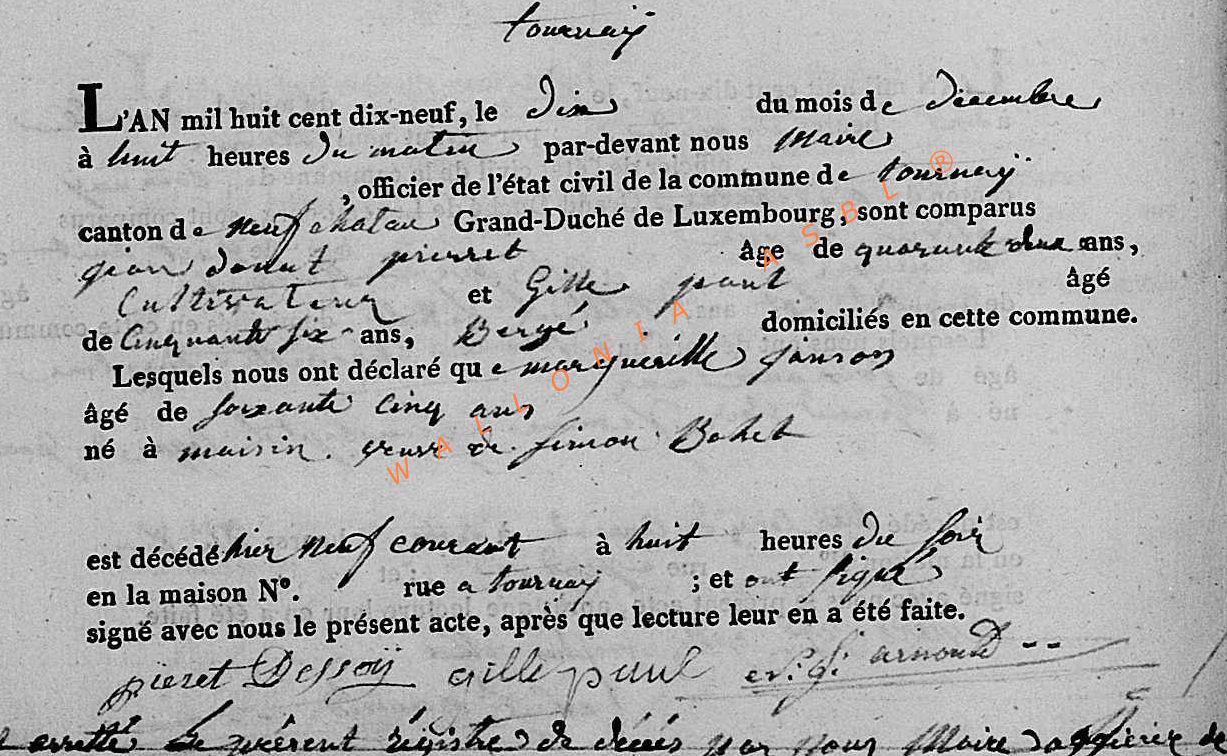 tournaÿ
L'AN mil huit cent dix-neuf, le dix du mois de decembre
à huit heures du matin par-devant nous Maire
, officier de l'état civil de la commune de tournaÿ
canton de neufchatau Grand-Duché de Luxembourg, sont comparus
jean donut pierret âge de quarante deux ans,
Cultivateur et Gille paul âgé
de Cinquante six ans, Bergé domiciliés en cette commune.
Lesquels nous ont déclaré que margueritte janson
âgé de soixante Cinq ans
né à maisin . veuve de simon Bohet
est décédé hier neuf courant à huit heures du soir
en la maison N°. rue a tournaÿ ; et ont signé
signé avec nous le présent acte, après que lecture leur en a été faite.
pieret Dessoÿ gille paul arnould
arretté Le présent régistre de décès par nous Maire officier de
WALLONIA ASBL ®